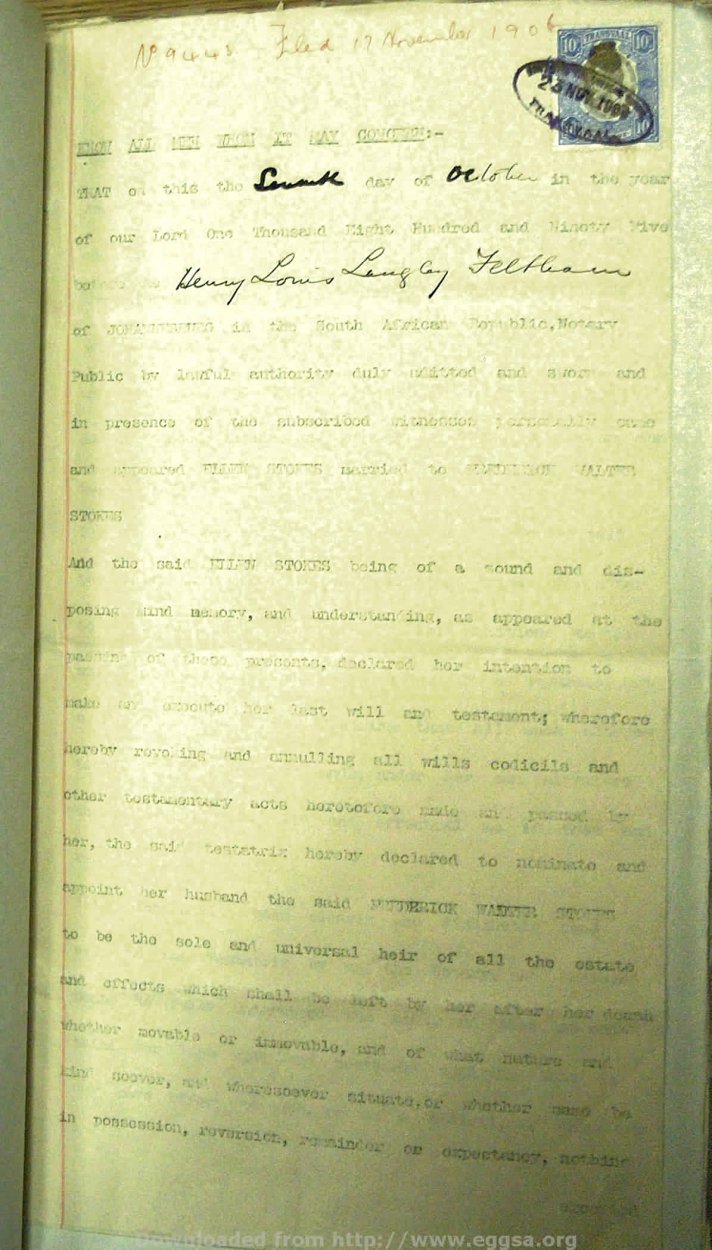 No 9443 Filed 17 November 1906
10/ TRANSVAAL 10/
23 NOV 1906
TRANSVAAL
KNOW ALL MEN WHOM IT MAY CONCERN:-
THAT on this the Seventh day of October in the year
of our Lord One Thousand Eight Hundred and Ninety Five
before me Henry Louis Langley Feltham
of JOHANNESBURG in the South African Republic, Notary
Public by lawful authority duly admitted and sworn and
in presence of the subscribed witnesses personally came
and appeared ELLEN STOKES married to FREDERICK WALTER
STOKES
And the said ELLEN STOKES being of a sound and dis-
posing mind memory, and understanding, as appeared at the
passing of these presents, declared her intention to
make an execute her last will and testament; wherefore
hereby revoking and annulling all wills codicils and
other testamentary acts heretofore made and passed by
her, the said testatrix hereby declared to nominate and
appoint her husband the said FREDERICK WALTER STOKES
to be the sole and universal heir of all the estate
and effects which shall be left by her after her death
whether movable or immovable, and of what nature and
kind soever, and wheresoever situate, or whether same be
in possession, reversion, remainder or expectancy, nothing
excepted
Downloaded from http://www.eggsa.org